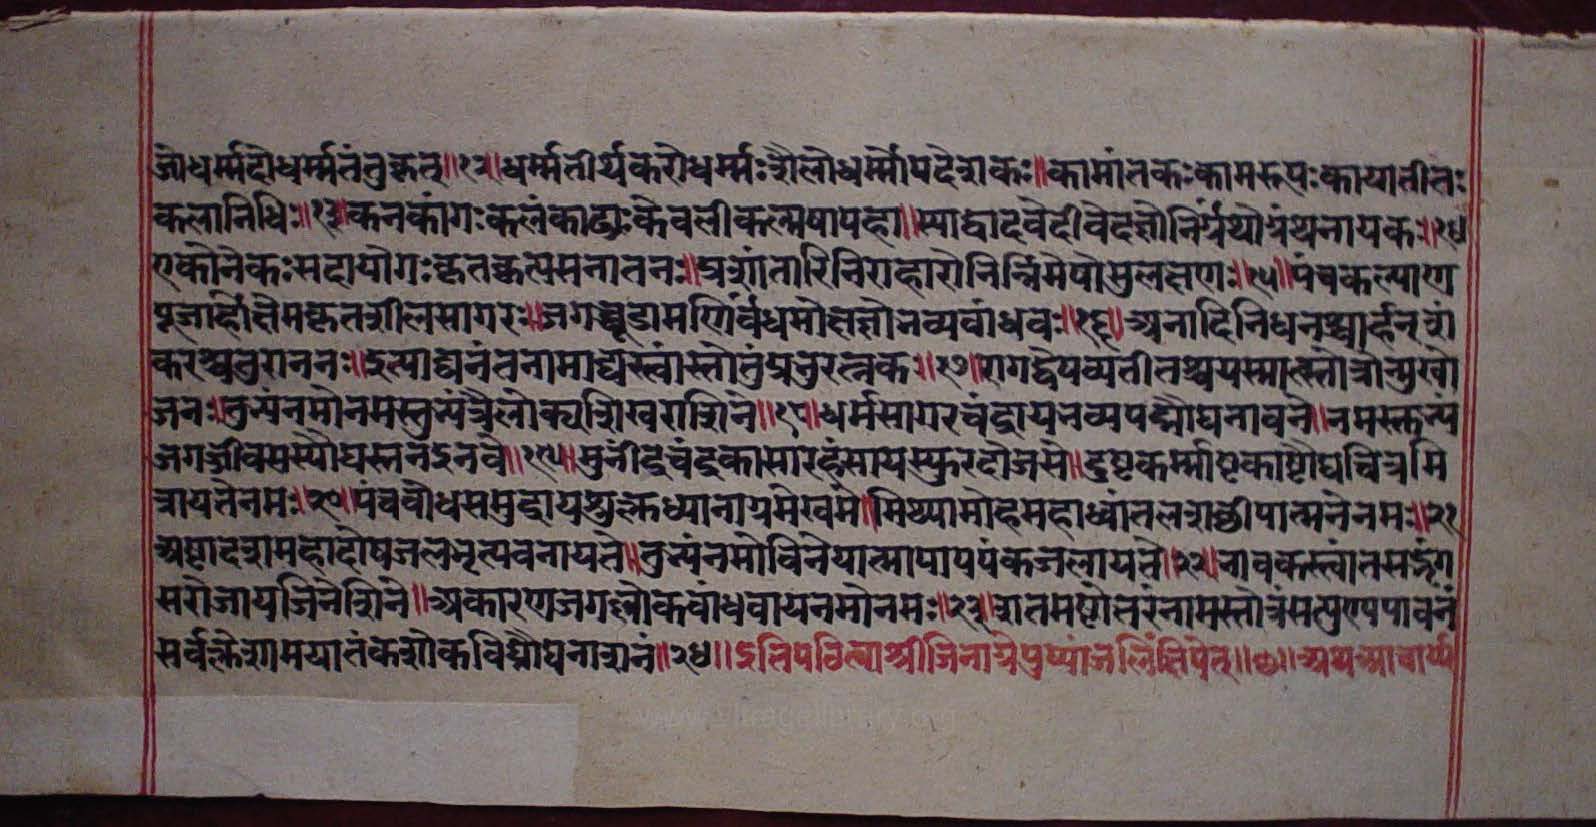 जोधर्म्मदोधर्म्मतंतुकृत्॥१२॥धर्म्मतीर्थकरोधर्म्मःशैलोधर्म्मोपदेशकः॥कामांतकःकामरूपःकायातीतः
कलानिधिः॥१३॥कनकांगःकलंकाढ्यःकेवलीकल्मषापहा॥स्याद्वादवेदीवेदज्ञोनिर्ग्रंथोग्रंथनायकः॥१४
एकोनेकःसदायोगःकृतकृत्यसनातनः॥प्रशांतारिनिराहारोनिर्न्निमेषोसुलक्षणः॥१५॥पंचकल्याण
पूजार्होक्षेमकृतशीलसागरः॥जगच्चूडामणिर्वर्धमोक्षज्ञोनव्यबांधवः॥१६॥अनादिनिधनश्चार्हन्शं
करश्चतुराननः॥इत्याद्यनंतनामाद्यंस्त्वांस्तोतुंप्रचुरत्नकः॥१७॥रागद्वेषव्यतीतश्चयस्मात्स्तोत्रोन्मुखो
जनः॥तुभ्यंनमोनमस्तुभ्यंत्रैलोक्यशिखराशिने॥१८॥धर्मसागरचंद्रायनव्यपद्मौघनावने॥नमस्तुभ्यं
जगज्जीवसस्यौघस्तनइनवे॥१९॥मुनींदुचंदुकासारहंसायस्फुरदोजसे॥दुष्टकर्म्माष्टकाष्टौघचित्रमि
त्रायतेनमः॥२०॥पंचबोधसमुद्रायशुक्लध्यानाग्रमेखमे॥मिथ्यामोहमहाध्वांतलशछीपात्मनेनमः॥२१
अष्टादशमहादोषजलभृत्पवनायते॥तुभ्यंनमोविनेयात्मापापपंकजलायते॥२२॥नावकस्त्वांतसद्भृंग
सरोजायजिनेशिने॥अकारणजगल्लोकबांधवायनमोनमः॥२३॥शतमष्टोत्तरंनामस्तोत्रंमत्पुण्यपावनं
सर्वक्लेशगमयातंकशोकविघ्नौघनाशनं॥२४॥इतिपठित्वाश्रीजिनाग्रेपुष्पांजलिंक्षिपेत्॥छ॥अथआचार्य्य